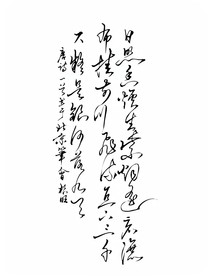 日照香炉生紫烟遥看瀑
布挂前川飞流直下三千
尺疑是银河落九天
唐诗一首书于北京笔会